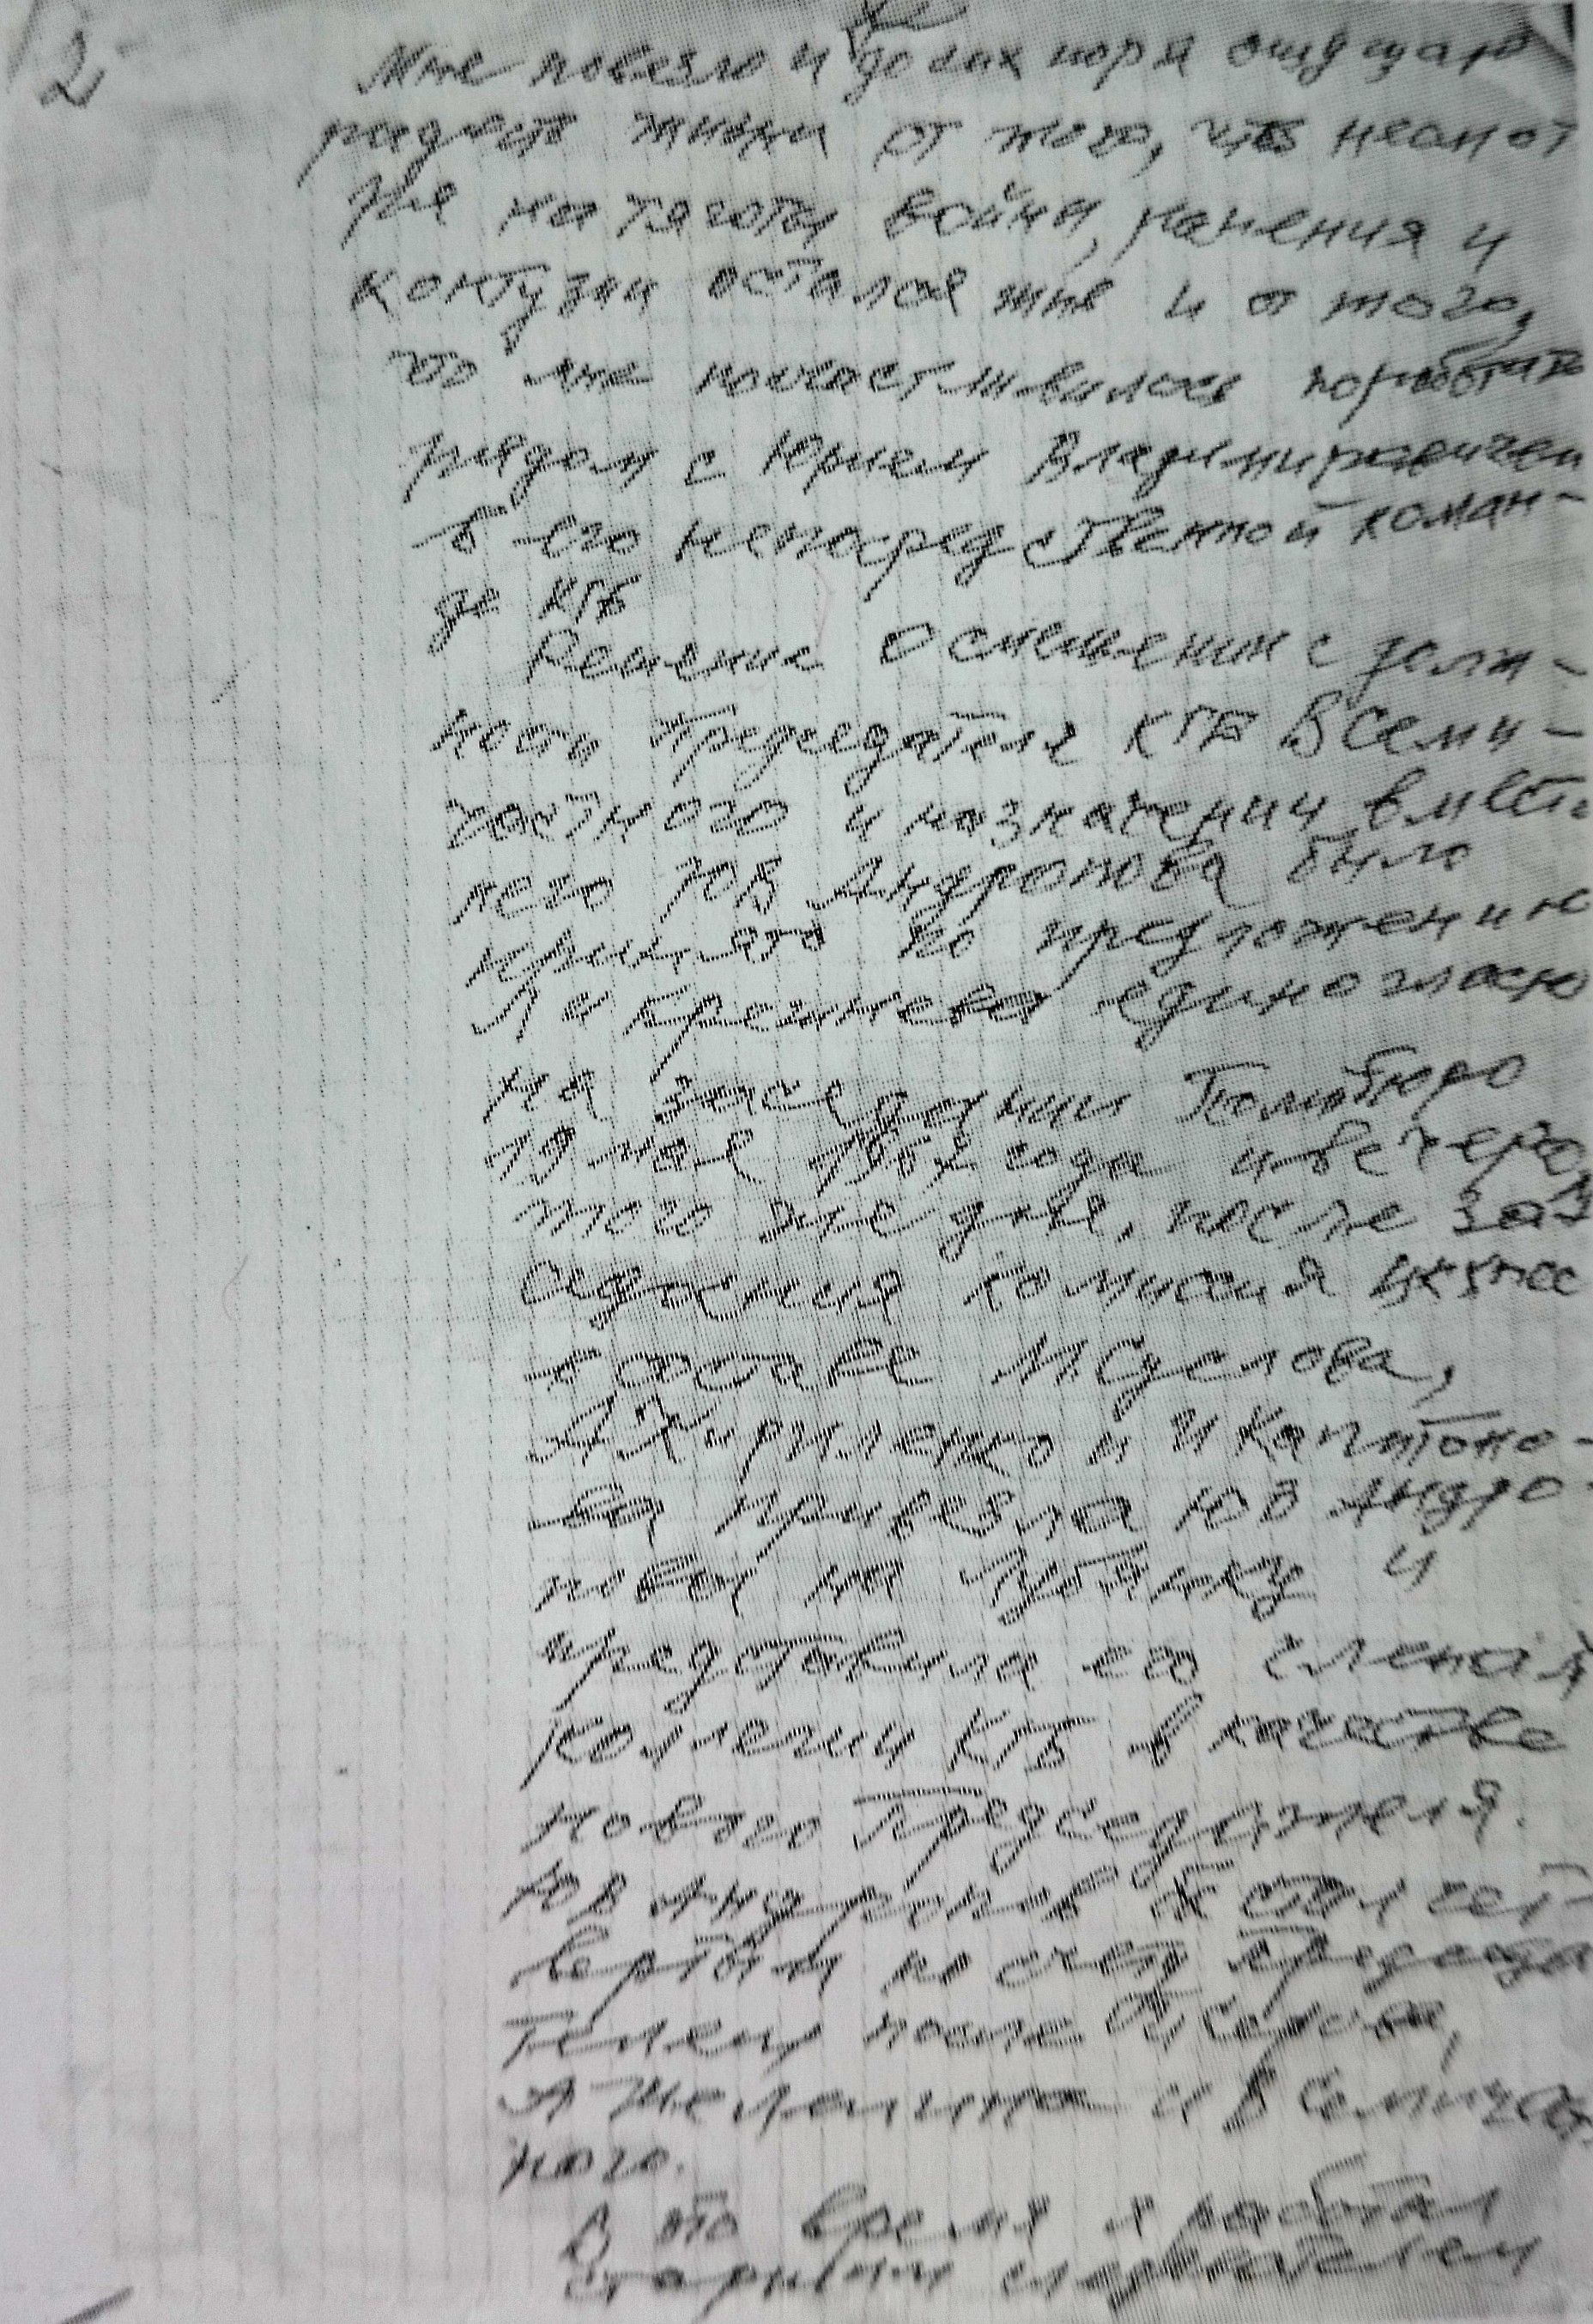 2
Мне повезло и до сих пор я ощущаю
радость жизни от того, что несмот
ря на тяготы войны, ранения и
контузии остался жив и от того,
что мне посчастливилось поработать
рядом с Юрием Владимировичем
в его непосредственной коман-
де КГБ
Решение о смещении с долж-
ности Председателя КГБ В Семи-
частного и назначении вместо
него ЮВ Андропова было
принято по предложению
Л И Брежнева единогласно
на заседании Политбюро
19 мая 1967 года и вечером
того же дня, после за
седания комиссия ЦК КПСС
в составе М Суслова,
А Кириленко и И Капитоно-
ва привезла ЮВ Андро-
пова на Лубянку и
представила его членам
коллегии КГБ в качестве
нового Председателя.
ЮВ Андропов стал чет
вертым по счету Председа
телем после И Серова,
А Шелепина и В Семичаст
ного.
В это время я работал
старшим следователем